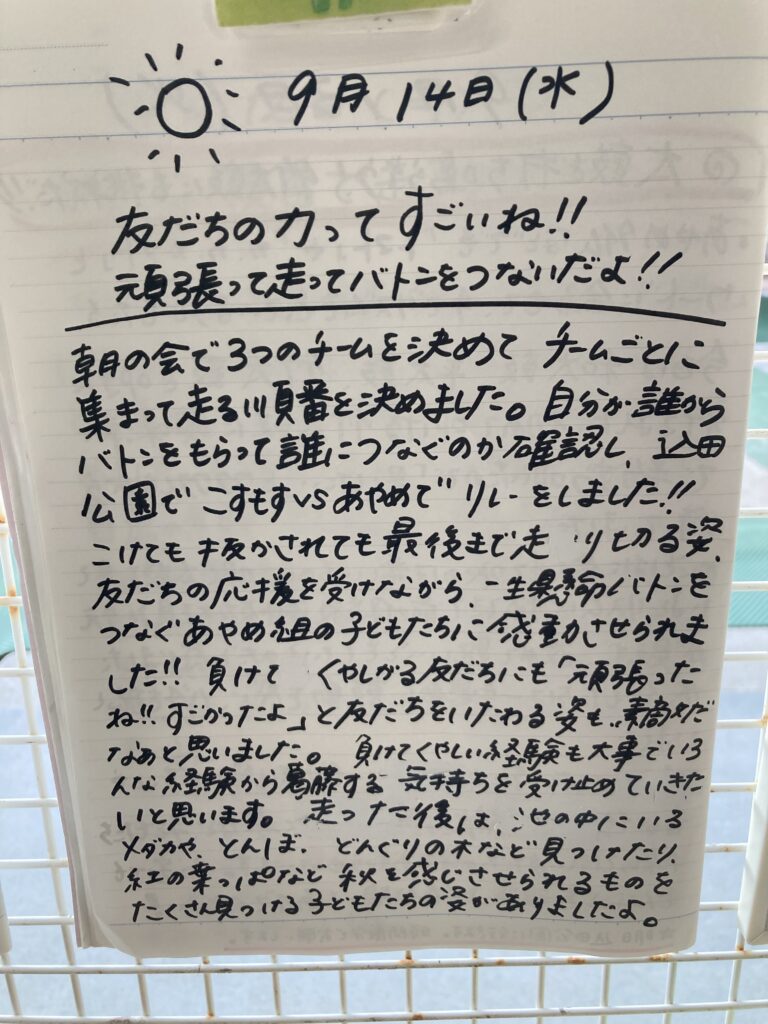 9月14日(水)
友だちの力ってすごいね!!
頑張って走ってバトンをつないだよ!!
朝の会で3つのチームを決めて チームごとに
集まって走る順番を決めました。自分が誰から
バトンをもらって誰につなぐのか確認し、込田
公園でこすもすvsあやめでリレーをしました!!
こけても抜かされても最後まで走り切る姿、
友だちの応援を受けながら、一生懸命バトンを
つなぐあやめ組の子どもたちに感動させられま
した!! 負けて くやしがる友だちにも「頑張った
ね!! すごかったよ」と友だちをいたわる姿も素敵だ
なあと思いました。負けてくやしい経験も大事でいろ
んな経験から葛藤する気持ちを受け止めていきた
いと思います。走った後は、池の中にいる
メダカや、とんぼ、どんぐりの木など見つけたり、
紅の葉っぱなど秋を感じさせられるものを
たくさん見つける子どもたちの姿がありましたよ。